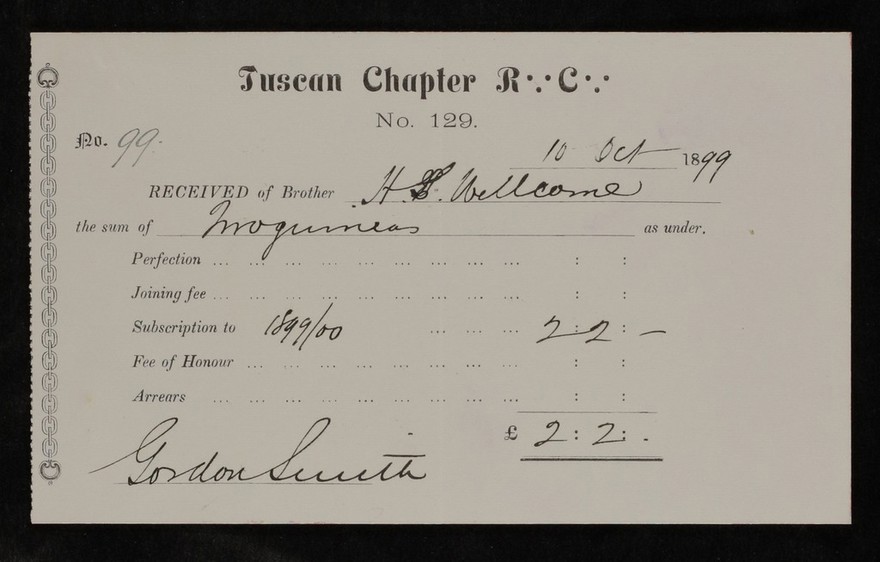 Tuscan Chapter R∵C∵
No. 129.
No. 99.
10 Oct 1899
RECEIVED of Brother H. S. Wellcome
the sum of Two guineas as under.
Perfection ... ... ... ... ... ... ... ... ... : :
Joining fee ... ... ... ... ... ... ... ... ... : :
Subscription to 1899/00 ... ... ... 2 : 2 : —
Fee of Honour ... ... ... ... ... ... ... ... : :
Arrears ... ... ... ... ... ... ... ... ... : :
£ 2 : 2 : .
Gordon Smith